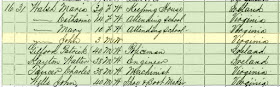 16 31 Welsh Maria 30 F W Keeping House Ireland
Catharine 12 F W Attending School Virginia
Mary 10 F W Attending School Virginia
John 3 M W Virginia
Gilford Patrick 40 M W Policeman Ireland
Slayton Walter 35 M W Engineer Ireland
Charles 30 M W Machinist Virginia
Wells John 40 M W Shoe & Boot Maker Virginia